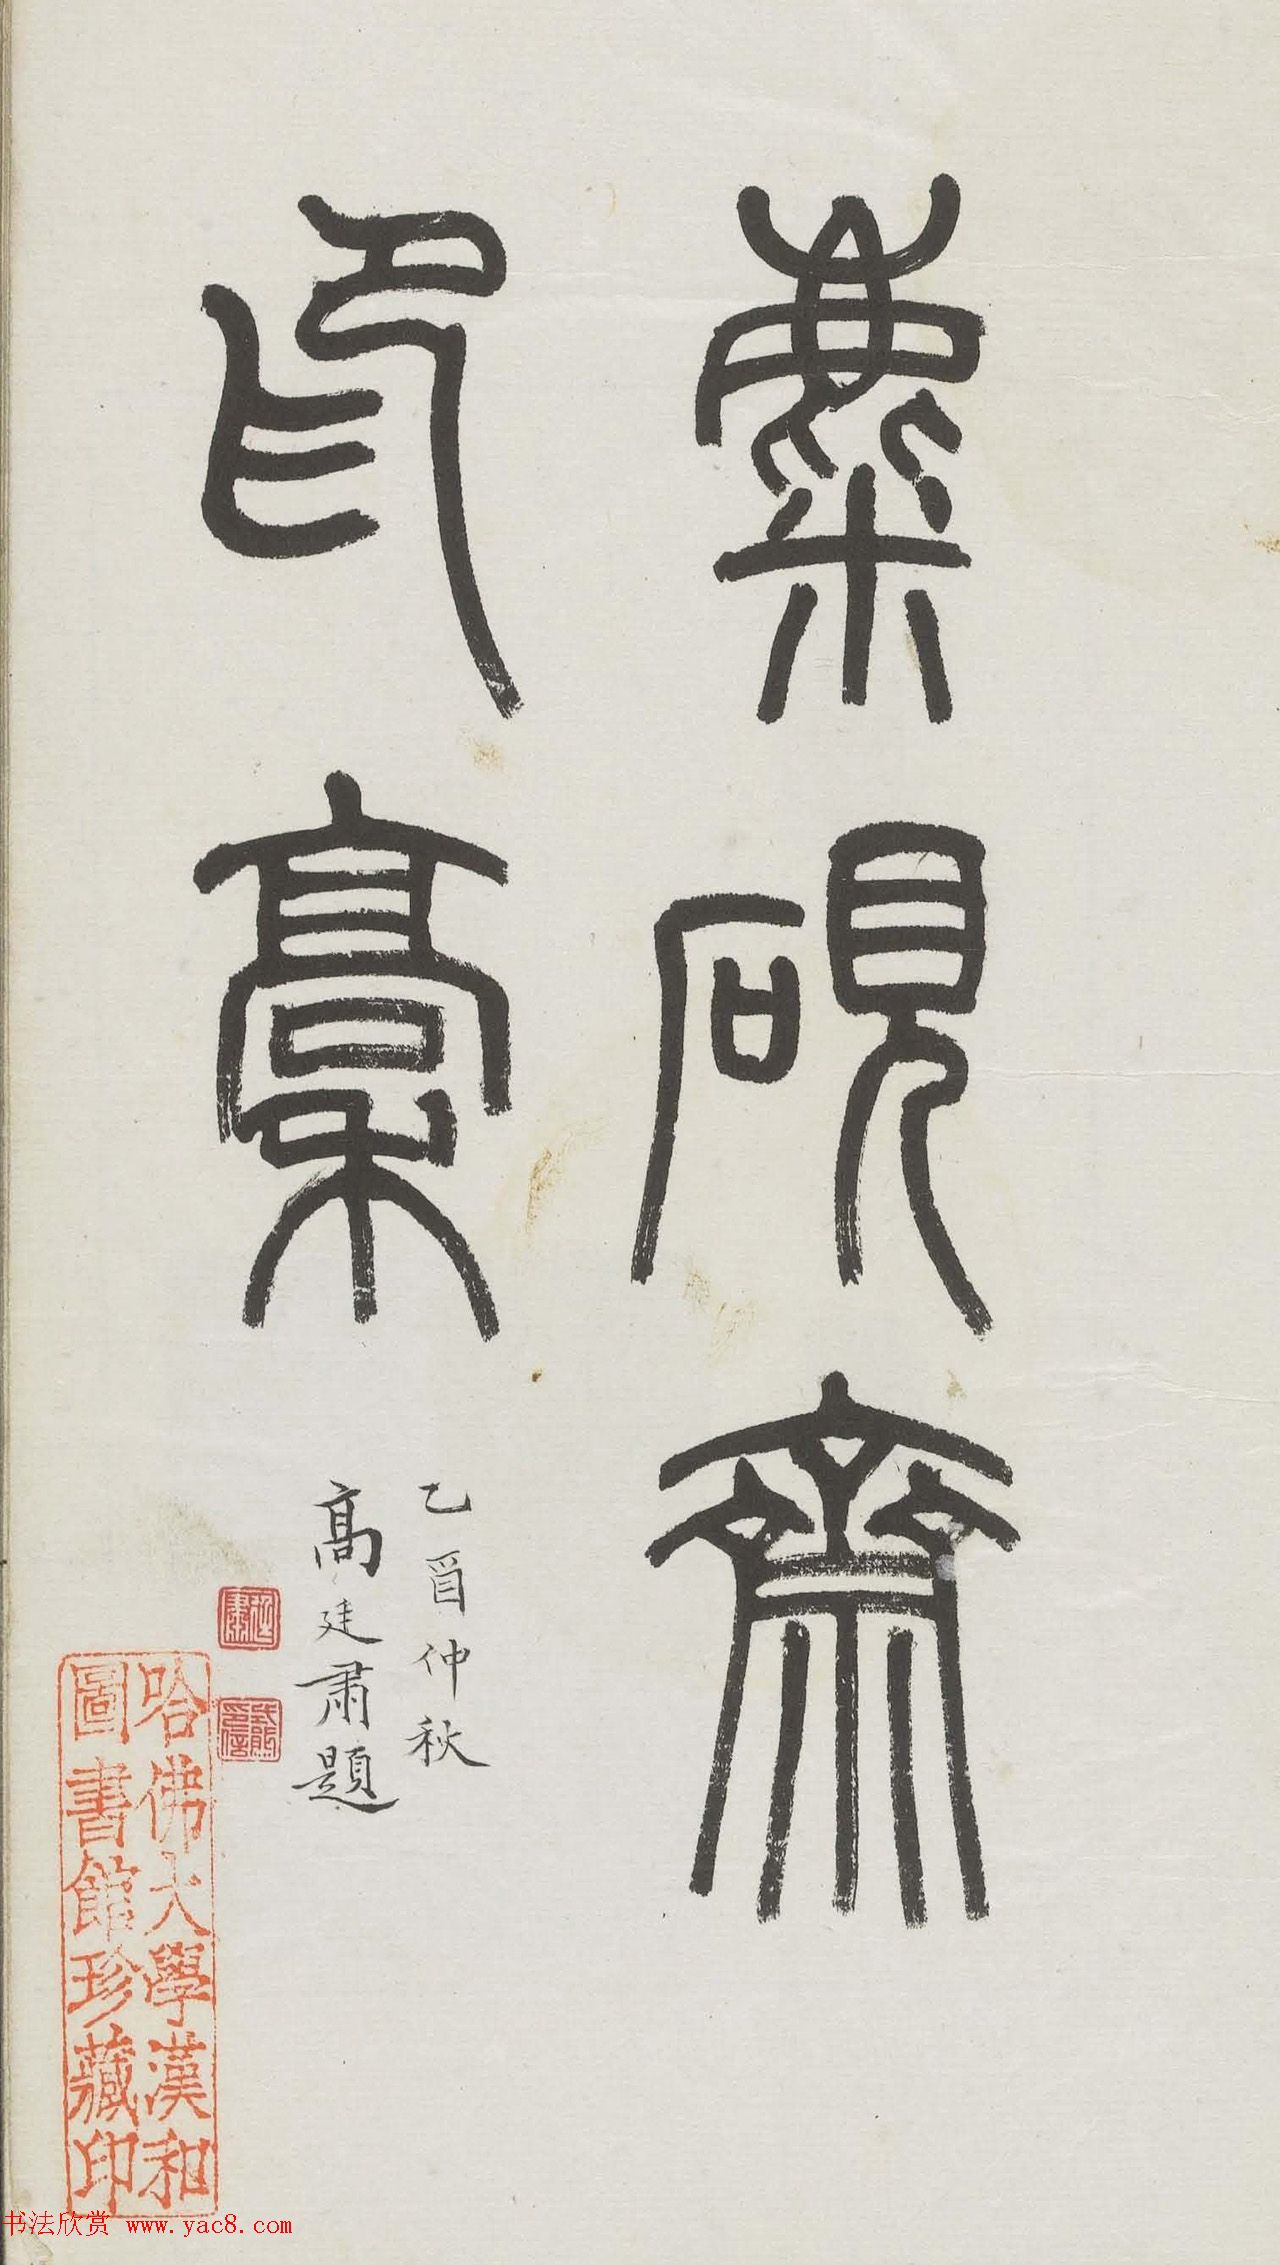 麋硯齋
印稾
乙酉仲秋
高廷肅題
廷肅
式熊印信
哈佛大學漢和
圖書館珍藏印
书法欣赏 www.yac8.com